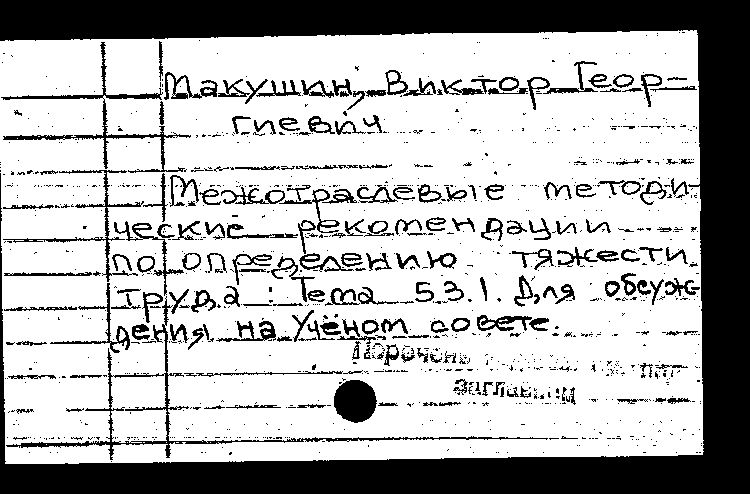 Макушин, Виктор Геор-
гиевич
Межотраслевые методи-
ческие рекомендации
по определению тяжести
труда : Тема 5.3.1. Для обсуж-
дения на Учёном совете.
Перечень
заглавием